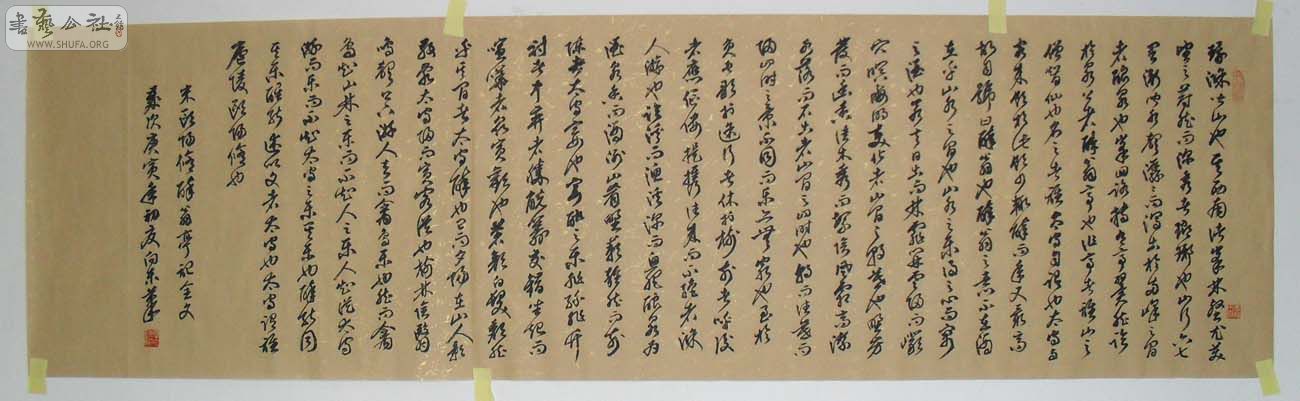 書藝公社
WWW.SHUFA.ORG
環滁皆山也其西南諸峯林壑尤美
望之蔚然而深秀者琅琊也山行六七
里漸聞水聲潺潺而瀉出於兩峯之間
者釀泉也峯回路轉有亭翼然臨
於泉上者醉翁亭也作亭者誰山之
僧智仙也名之者誰太守自謂也太守與
客來飲於此飲少輒醉而年又最高
故自號曰醉翁也醉翁之意不在酒
在乎山水之間也山水之樂得之心而寓
之酒也若夫日出而林霏開雲歸而巖
穴暝晦明變化者山間之朝暮也野芳
發而幽香佳木秀而繁陰風霜高潔
水落而石出者山間之四時也朝而往暮而
歸四時之景不同而樂亦無窮也至於
負者歌於途行者休於樹前者呼後
者應傴僂提攜往來而不絕者滁
人遊也臨溪而漁溪深而魚肥釀泉為
酒泉香而酒洌山肴野蔌雜然而前
陳者太守宴也宴酣之樂非絲非竹
射者中弈者勝觥籌交錯坐起而
喧嘩者衆賓歡也蒼顏白髮頹然
乎其間者太守醉也已而夕陽在山人影
散亂太守歸而賓客從也樹林陰翳
鳴聲上下遊人去而禽鳥樂也然而禽
鳥知山林之樂而不知人之樂人知從太守
遊而樂而不知太守之樂其樂也醉能同
其樂醒能述以文者太守也太守謂誰
廬陵歐陽脩也
宋歐陽脩醉翁亭記全文
歲次庚寅年初夏向東書